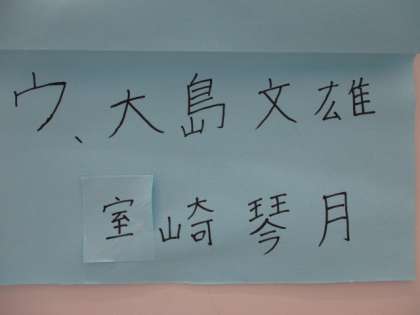 ウ、大島文雄
室崎琴月